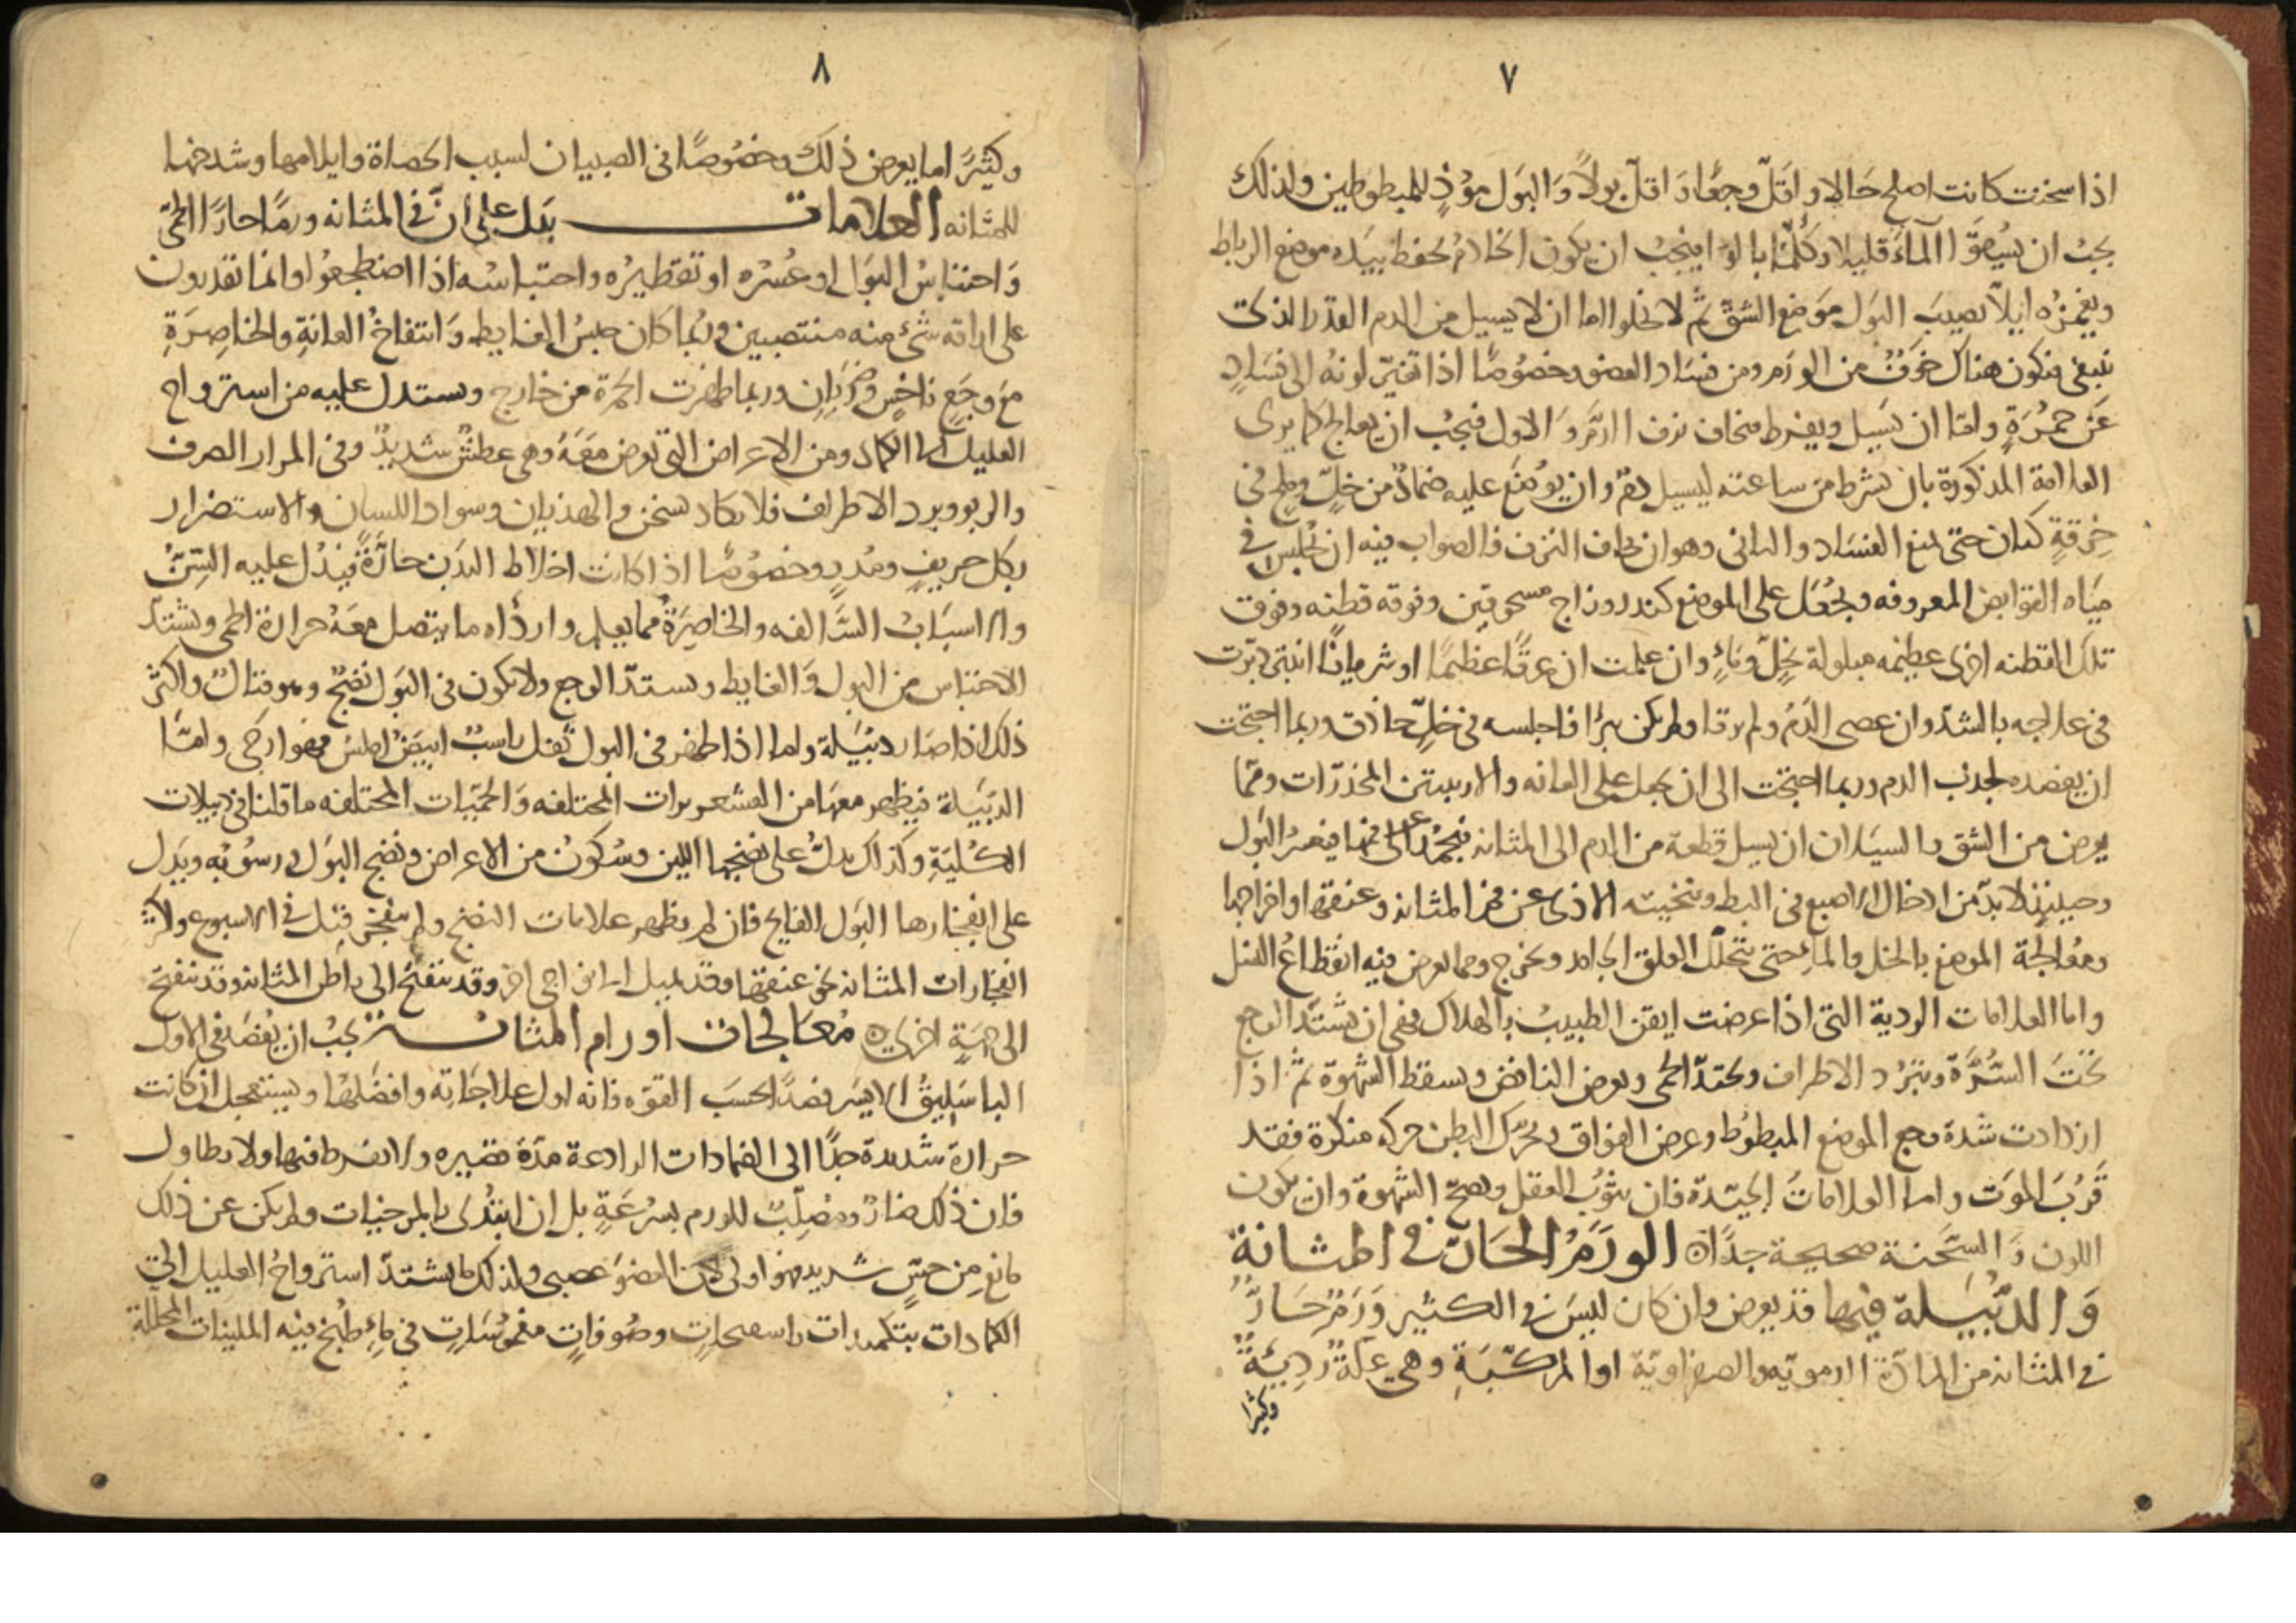 ٧
اذا سخنت كانت اصلح حالا واقل وجعا واقل بولا والبول موذ للمبطوطين ولذلك
يجب ان يسقوا المآء قليلا وكلما بالوا فيجب ان يكون الخادم يحفظ بيده موضع الرباط
ويغمزه ليلا يصيب البول موضع الشق ثم لا يخلوا اما ان لا يسيل من الدم القدر الذى
ينبغى فيكون هناك خوف من الورم ومن فساد العضو وخصوصا اذا تغير لونه الى فساد
عن حمرة واما ان يسيل ويفرط فيخاف نزف الدم والاول فيجب ان يعالج كما يرى
العلامة المذكورة بان يشرط من ساعته ليسيل دم وان يوضع عليه ضماد من خل وملح فى
خرقة كتان حتى يمنع الفساد والثانى وهو ان يخاف النزف فالصواب فيه ان يجلس فى
مياه القوابض المعروفه ويجعل على الموضع كندر وزاج مسحوقين وفوقه قطنه وفوق
تلك القطنه اخرى عظيمه مبلولة بخل وماء وان علمت ان عرقا عظيما او شريانا انبتر
فى علاجه بالشد وان عصى الدم ولم يرقا ولم يكن بترا فاجلسه فى خل حاذق وربما احتجت
ان يفصد لجذب الدم وربما احتجت الى ان يجعل على العانه والاربيتين المخدرات ومما
يعرض من الشق والسيلان ان يسيل قطعة من الدم الى المثانه فيجمد على فمها فيعسر البول
وحينئذ لا بد من ادخال الاصبع فى البط وتنحيته الاذى عن فم المثانه وعنقها واخراجها
ومعالجة الموضع بالخل والمآء حتى يتحلل العلق الجامد ويخرج ومما يعرض فيه انقطاع النسل
واما العلامات الردية التى اذا عرضت ايقن الطبيب بالهلاك فهى ان يشتد الوجع
تحت السرة وتبرد الاطراف وتحتد الحمى ويعرض النافض ويسقط الشهوة ثم اذا
ازدادت شدة وجع الموضع المبطوط وعرض الفواق وتحرك البطن حركه منكرة فقد
قرب الموت واما العلامات الجيدة فان يثوب العقل ويصح الشهوة وان يكون
اللون والسحنة صحيحة جدا ۞ الورم الحار فى المثانة
والدبيلة فيها قد يعرض وان كان ليس فى الكثير ورم حار
فى المثانه من المادة الدموية والصفراوية او المركبة وهى علة ردئية
وكثيرا
٨
وكثيرا ما يعرض ذلك وخصوصا فى الصبيان لسبب الحصاة وايلامها وشدخها
للمثانه العلامات يدل على ان فى المثانه ورما حارا الحمى
واحتباس البول او عسره او تقطيره واحتباسه اذا اضطجعوا وانما يقدرون
على اراقه شئ منه منتصبين وربما كان حبس الغايط وانتفاخ العانة والخاصرة
مع وجع ناخس وضربان وربما ظهرت الحمرة من خارج ويستدل عليه من استرواح
العليل الى الكماد ومن الاعراض التى تعرض معه وهى عطش شديد وقى المرار الصرف
والربو وبرد الاطراف فلا يكاد يسخن والهذيان وسواد اللسان والاستضرار
بكل حريف ومدر وخصوصا اذا كانت اخلاط البدن حارة فيدل عليه السن
والاسباب السالفه والخاصرة مما يعلم واردأه ما يتصل معه حرارة الحمى ويشتد
الاحتباس من البول والغايط ويستد الوجع ولا يكون فى البول نضج وهو قتال واكثر
ذلك اذا صار دبيلة واما اذا ظهر فى البول ثفل راسب ابيض املس فهو ارجى واما
الدبيلة فيظهر معها من القشعريرات المختلفه والحميات المختلفه ما قلنا فى دبيلات
الكلية وكذاك يدل على نضجها اللين وسكون من الاعراض ونضج البول ورسوبه ويدل
على انفجارها البول القايح فان لم يظهر علامات النضج ولم ينفجر قتل فى الاسبوع واكثر
انفجارات المثانه نحو عنقها وقد يميل الى نواحى اخر وقد تنفتح الى باطن المثانه وقد تنفتح
الى جهة اخرى ۞ معالجات اورام المثانة يجب ان يفصد فى الاول
الباسليق الايسر فصدا بحسب القوه فانه اول علاجاته وافضلها ويستعجل ان كانت
حرارة شديدة جدا الى الضمادات الرادعة مدة قصيره ولا تفرط فيها ولا يطاول
فان ذلك ضار ومصلب للورم بسرعة بل ان ابتدئ بالمرخيات ولم يكن عن ذلك
مانع من حس شديد فهو اولى لان العضو عصبى ولذلك ما يشتد استرواح العليل الى
الكمادات بتكميدات باسفنجات وصوفات مغموسات فى ماء طبخ فيه الملينات المحللة